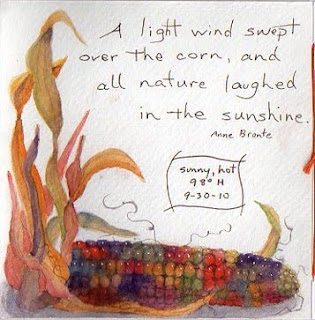 A light wind swept
over the corn, and
all nature laughed
in the sunshine.
Anne Bronte
sunny, hot
98° H
9-30-10